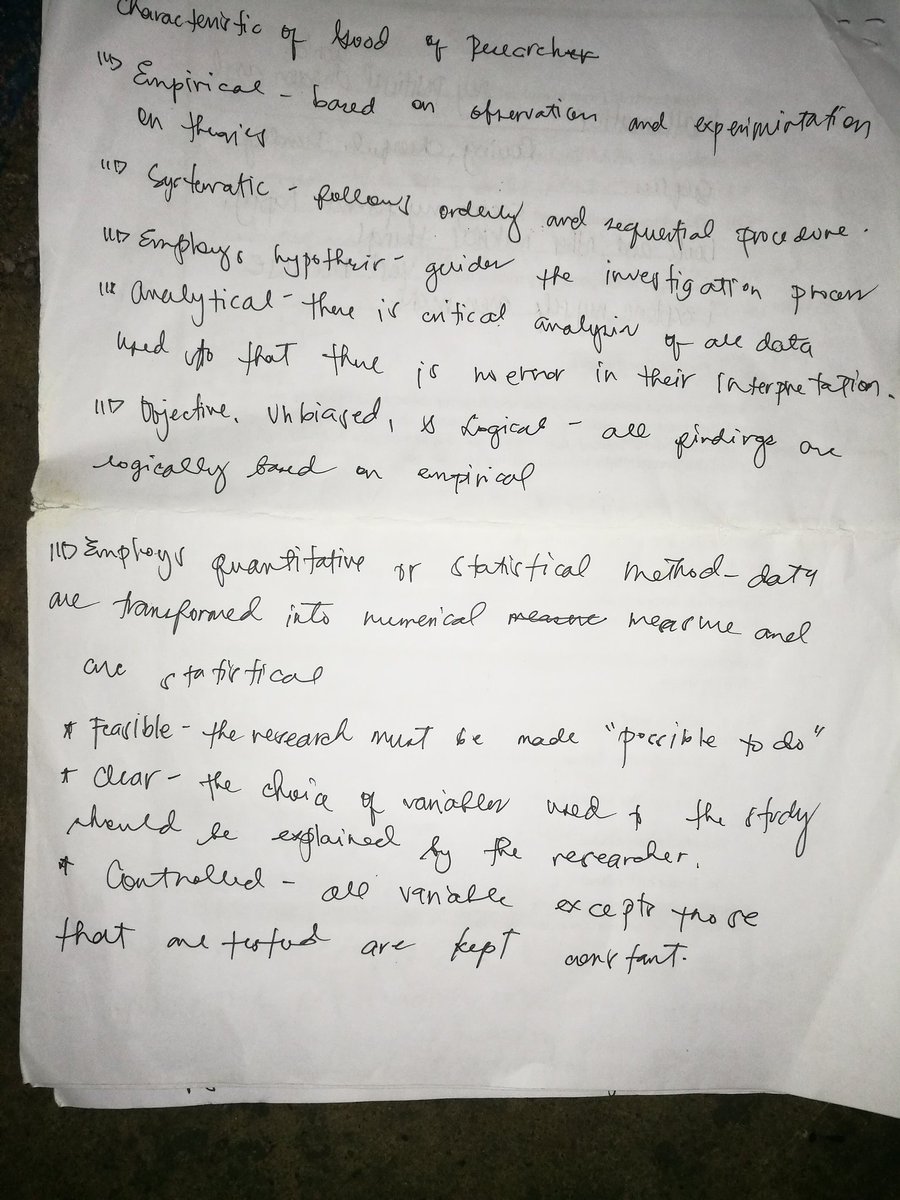 Characteristic of Good of Researcher
Empirical - based on observation and experimintation
on theories
Systematic - follows orderly and sequential procedure.
Employs hypothesis - guides the investigation process
Analytical - there is critical analysis of all data
used so that there is no error in their interpretation.
Objective, Unbiased, & Logical - all findings are
logically based on empirical
Employs quantitative or statistical method - data
are transformed into numerical measure measure and
are statistical
* Feasible - the research must be made "possible to do"
* Clear - the choice of variables used to the study
should be explained by the researcher.
* Controlled - all variable excepts those
that are tested are kept constant.